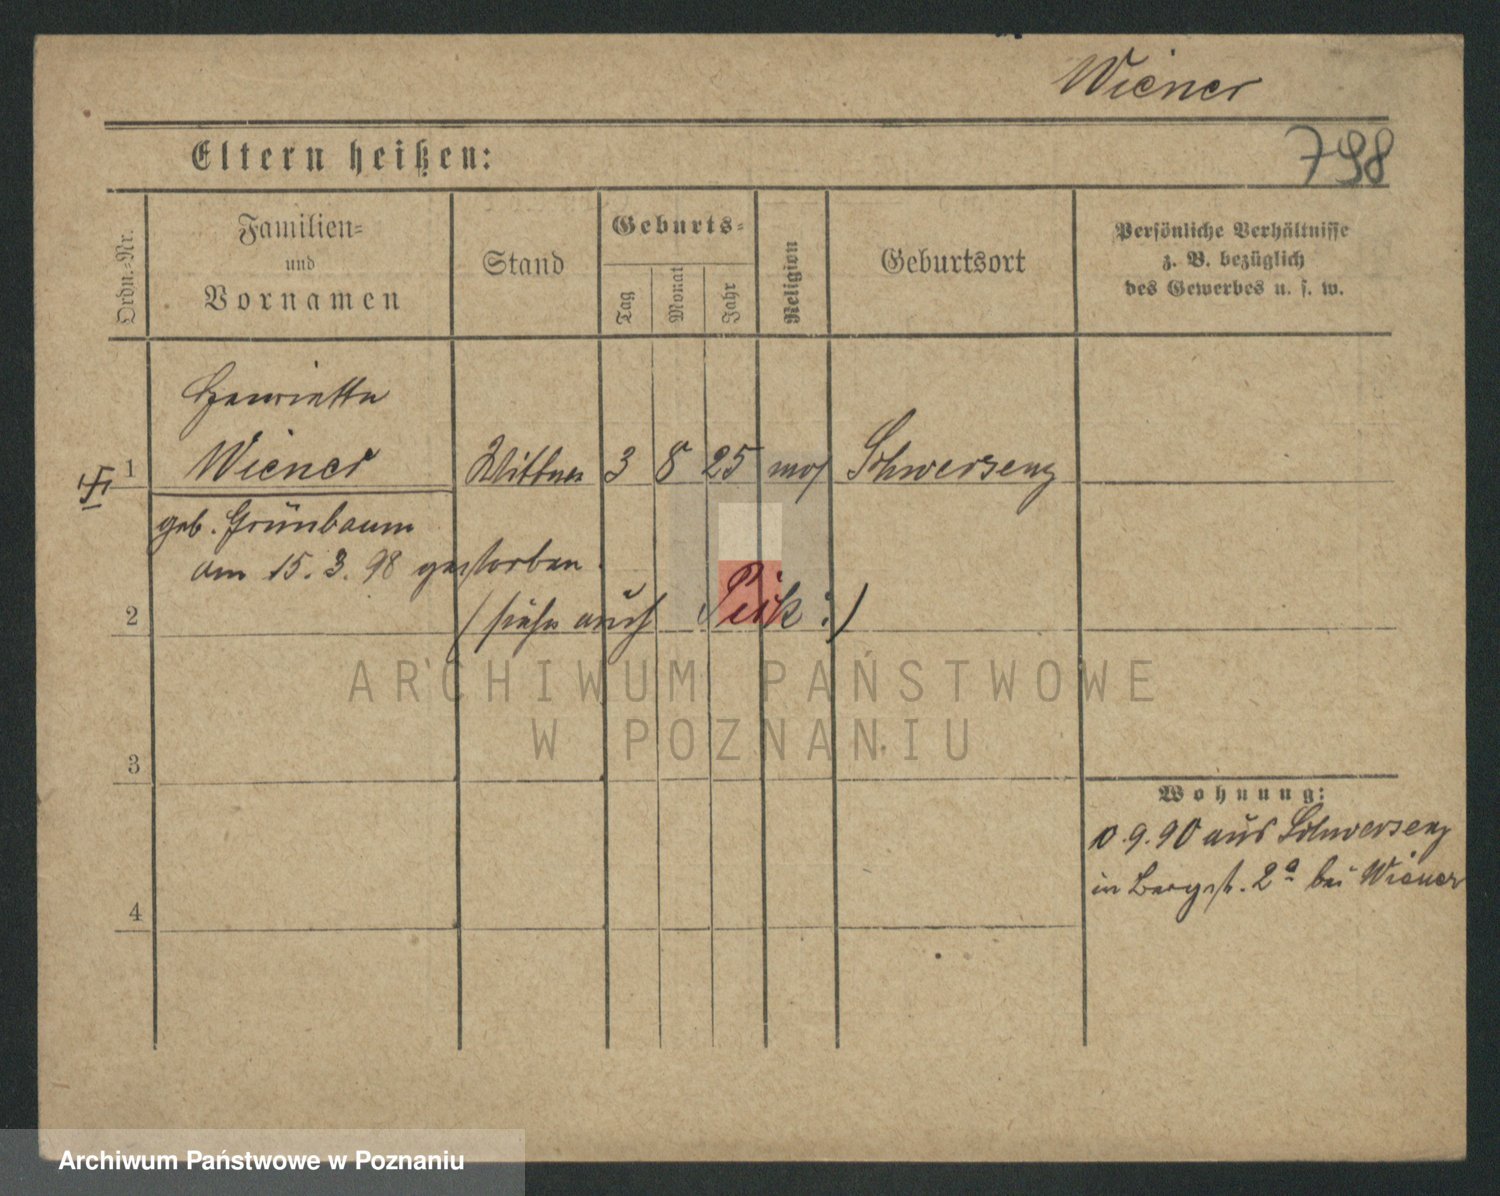 Wiener
798
Eltern heißen:
Ordn.-Nr.
Familien-
und
Vornamen
Stand
Geburts-
Tag
Monat
Jahr
Religion
Geburtsort
Persönliche Verhältnisse
z. B. bezüglich
des Gewerbes u. s. w.
Henriette
1 Wiener Wittwe 3 8 25 mos Schwersenz
geb. Grünbaum
am 15. 3. 98 gestorben.
2 (siehe auch Peik:)
ARCHIWUM PAŃSTWOWE
W POZNANIU
3
Wohnung:
10.9.90 aus Schwersenz
in Bergst. 2a bei Wiener
4
Archiwum Państwowe w Poznaniu